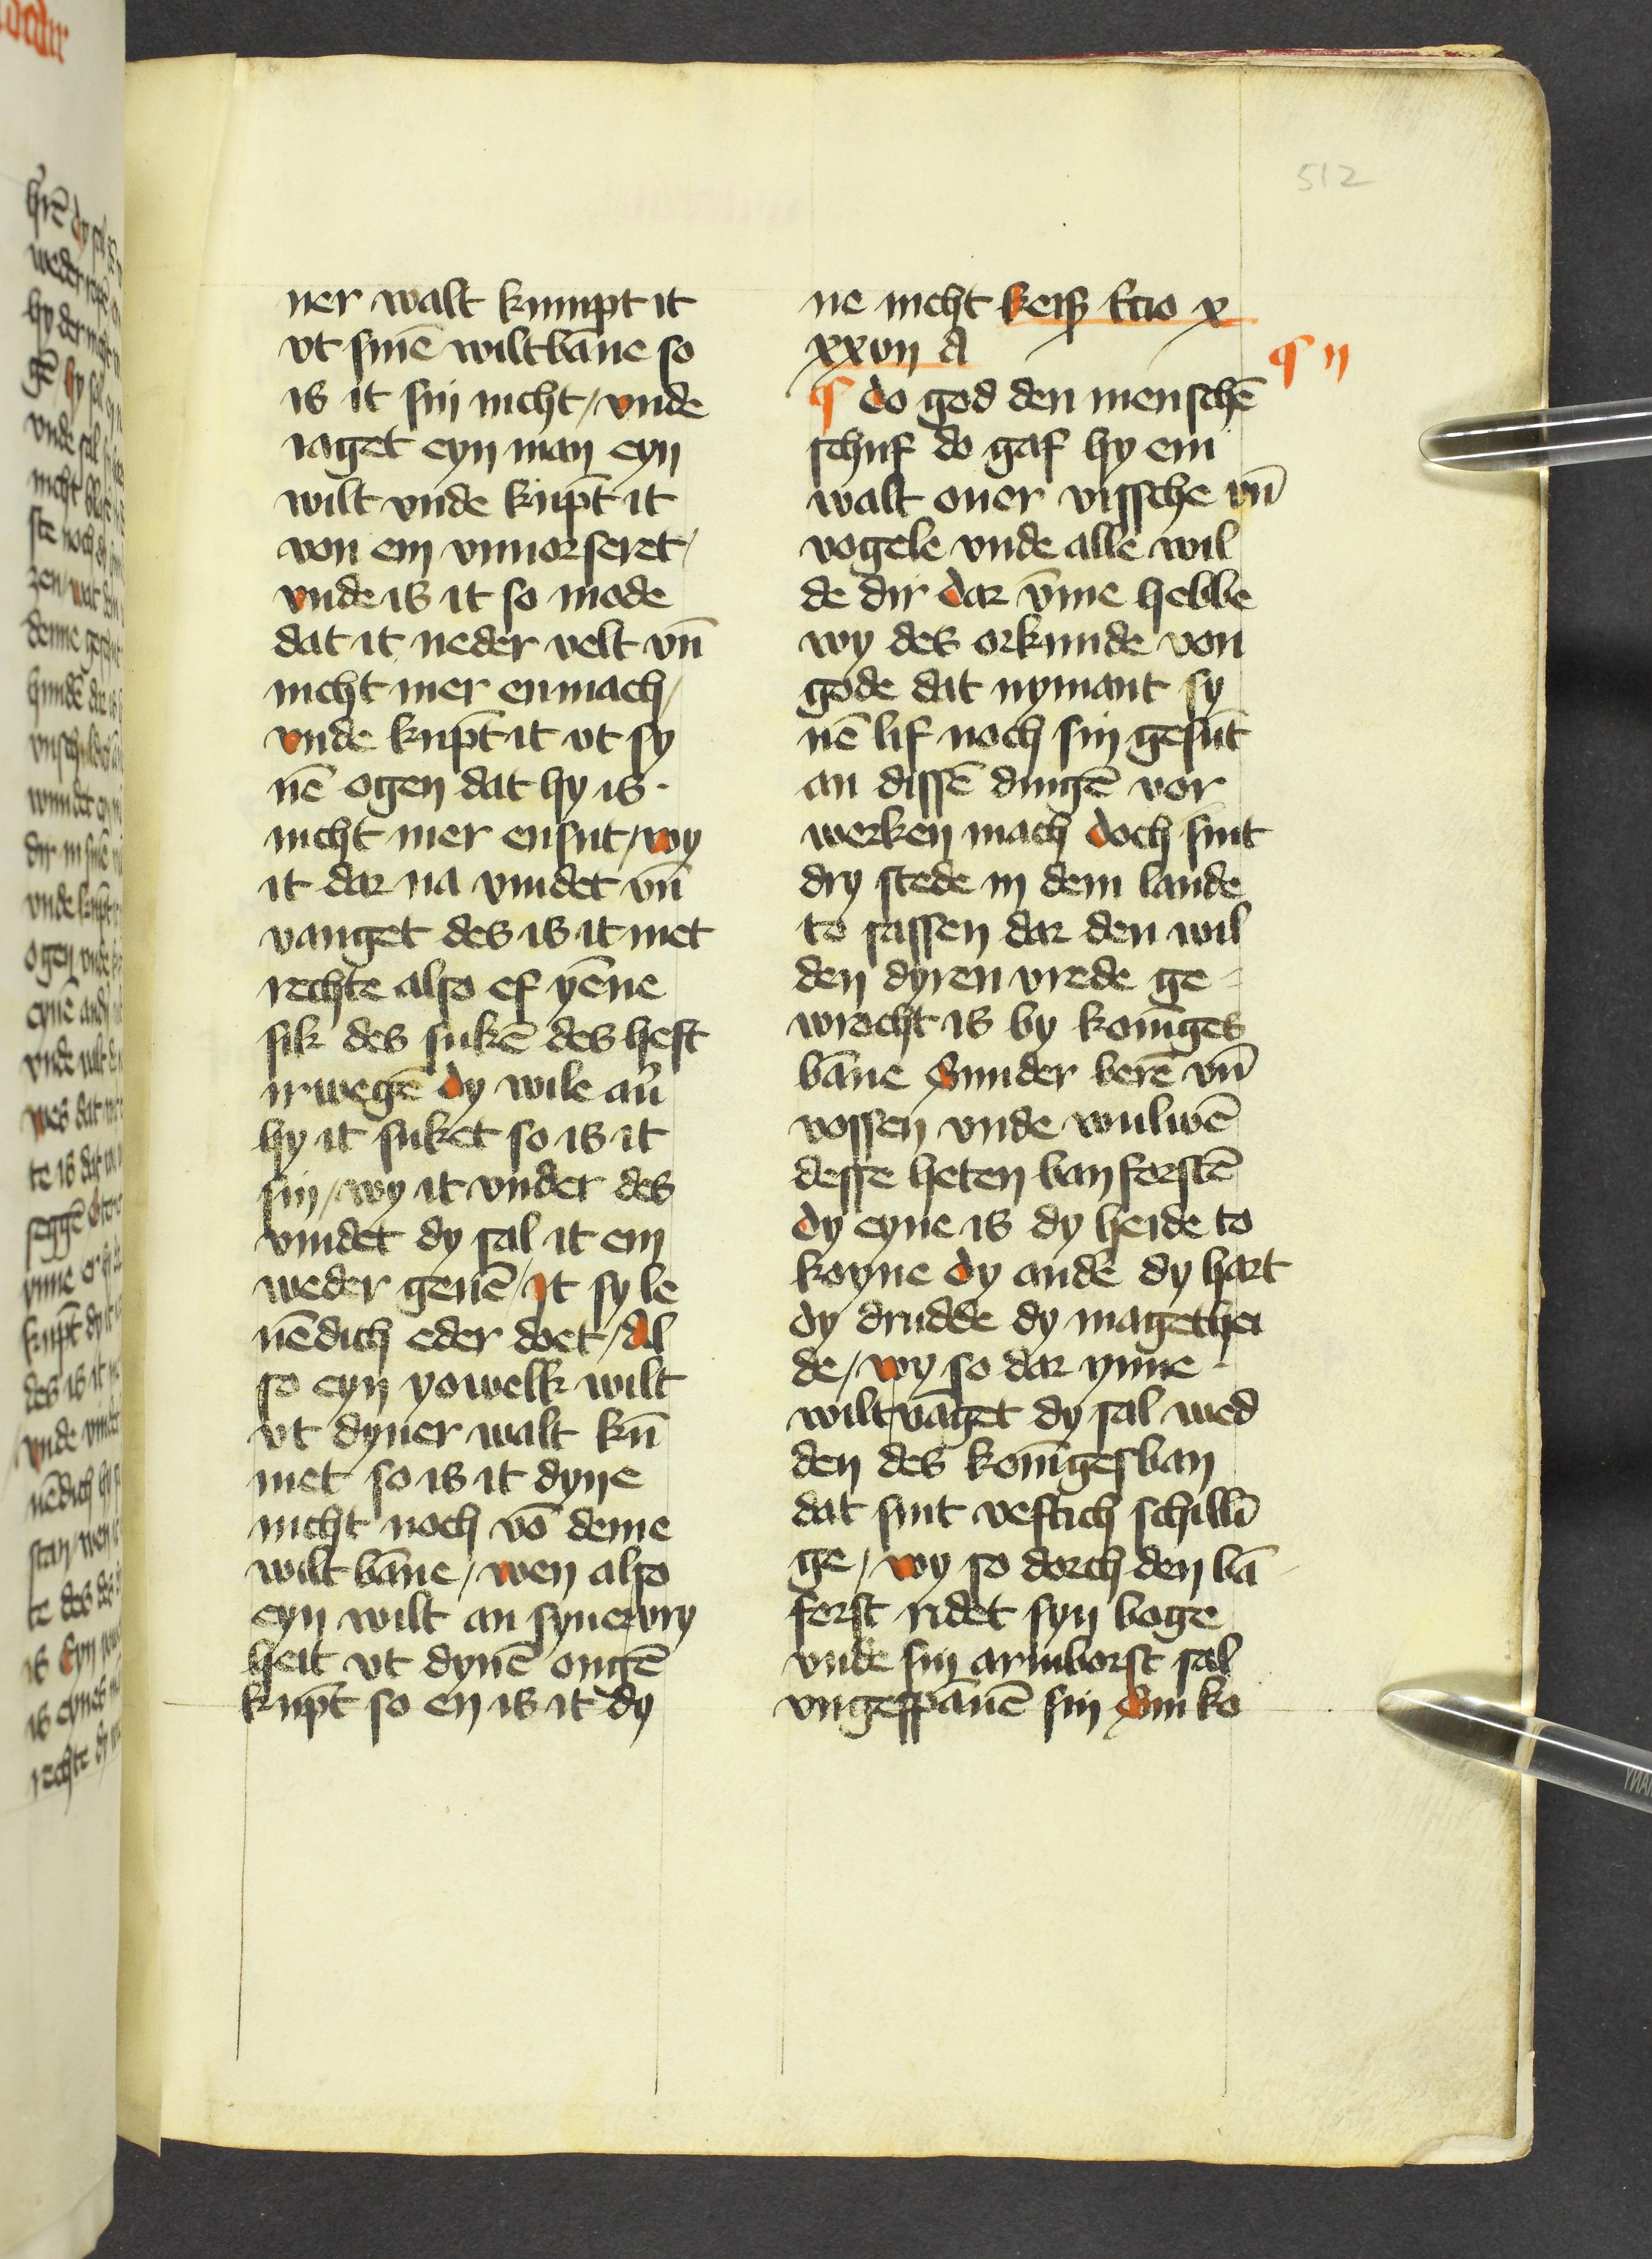 512
ner walt kumpt it
vt sinē wiltbāne so
is it sin nicht / vnde
iaget eyn man eyn
wilt vnde kūpt it
von em vnuorseret /
vnde is it so mode
dat it neder velt vn̄
nicht mer enmach /
vnde kūpt it vt sy
nē ogen dat hy is
nicht mer ensut / wy
it dar na vindet vn̄
vanget des is it met
rechte also ef yēne
sik des sukē des heft
irwegē dy wile
hy it suket so is it
sin / wy it vnder des
vindet dy sal it em
weder geuē / It sy le
uēdich eder doet / Al
so eyn yowelk wilt
vt dyner walt kū
met so is it dyne
nicht noch vō deme
wilt bāne / wen also
eyn wilt an syner vry
heit vt dynē ougē
kūpt so en is it dy
ne nicht x
xxvii A
¶ ii
¶ do god den menschē
schuf do gaf hy em
walt ouer vissche vn̄
vogele vnde alle wil
de dir dar v̄me hebbe
wy des orkunde von
gode dat nymant sy
nē lif noch sin gesūt
an dissē dingē vor
werken mach doch sint
dry stede in dem lande
to sassen dar den wil
den dyren vrede ge
wrocht is by koninges
bāne Sunder berē vn̄
vossen vnde wulwē
desse heten ban forstē
dy eyne is dy heide to
koyne dy andē dy hart
dy drudde dy magethei
de / wy so dar ynne
wilt vāget dy sal wed
den des koningesban
dat sint vestich schilli
ge / wy so dorch den bā
forst ridet syn boge
vnde sin armborst sal
vngespānē sin Sin ko